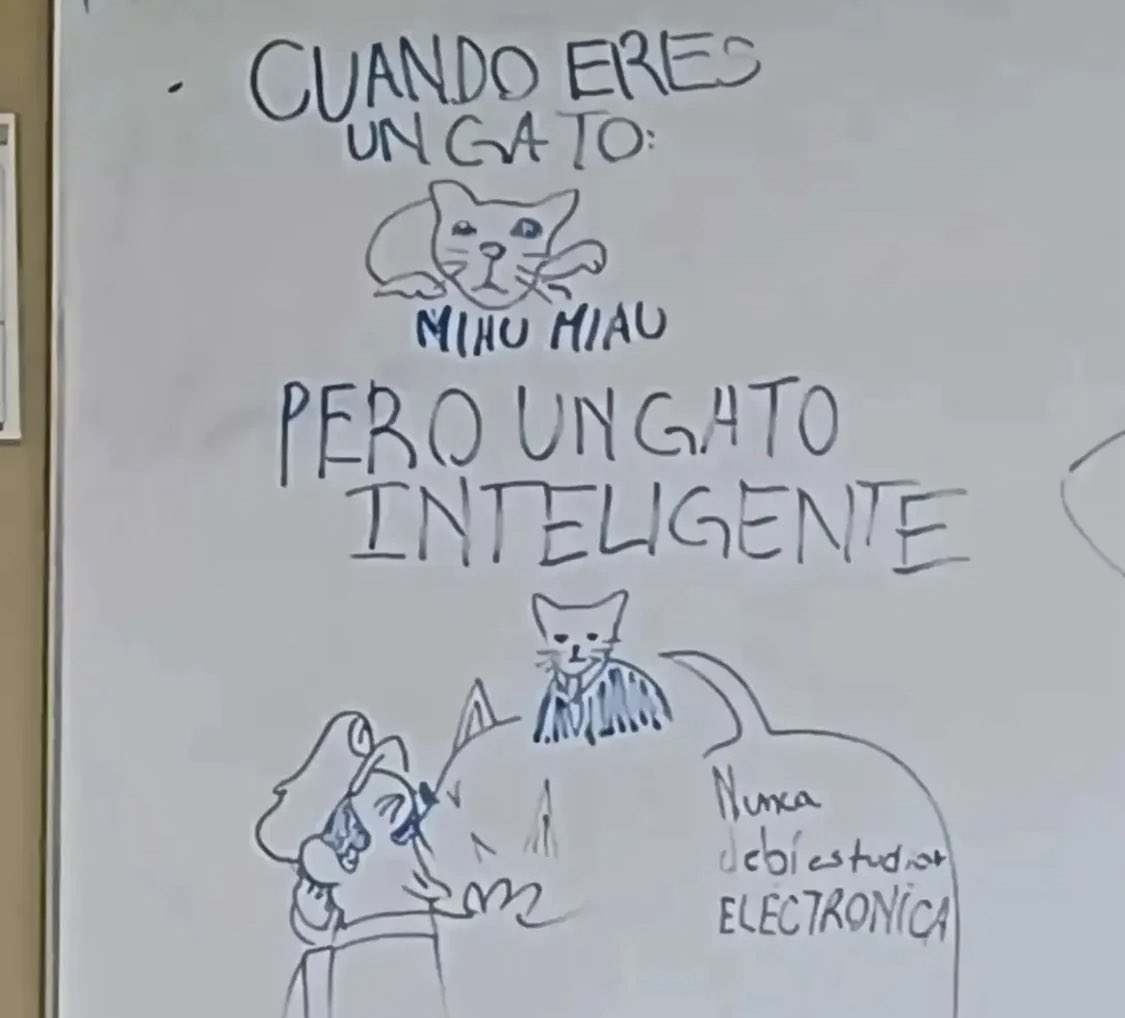 CUANDO ERES
UN GATO:
MIAU MIAU
PERO UN GATO
INTELIGENTE
Nunca
debí estudiar
ELECTRONICA